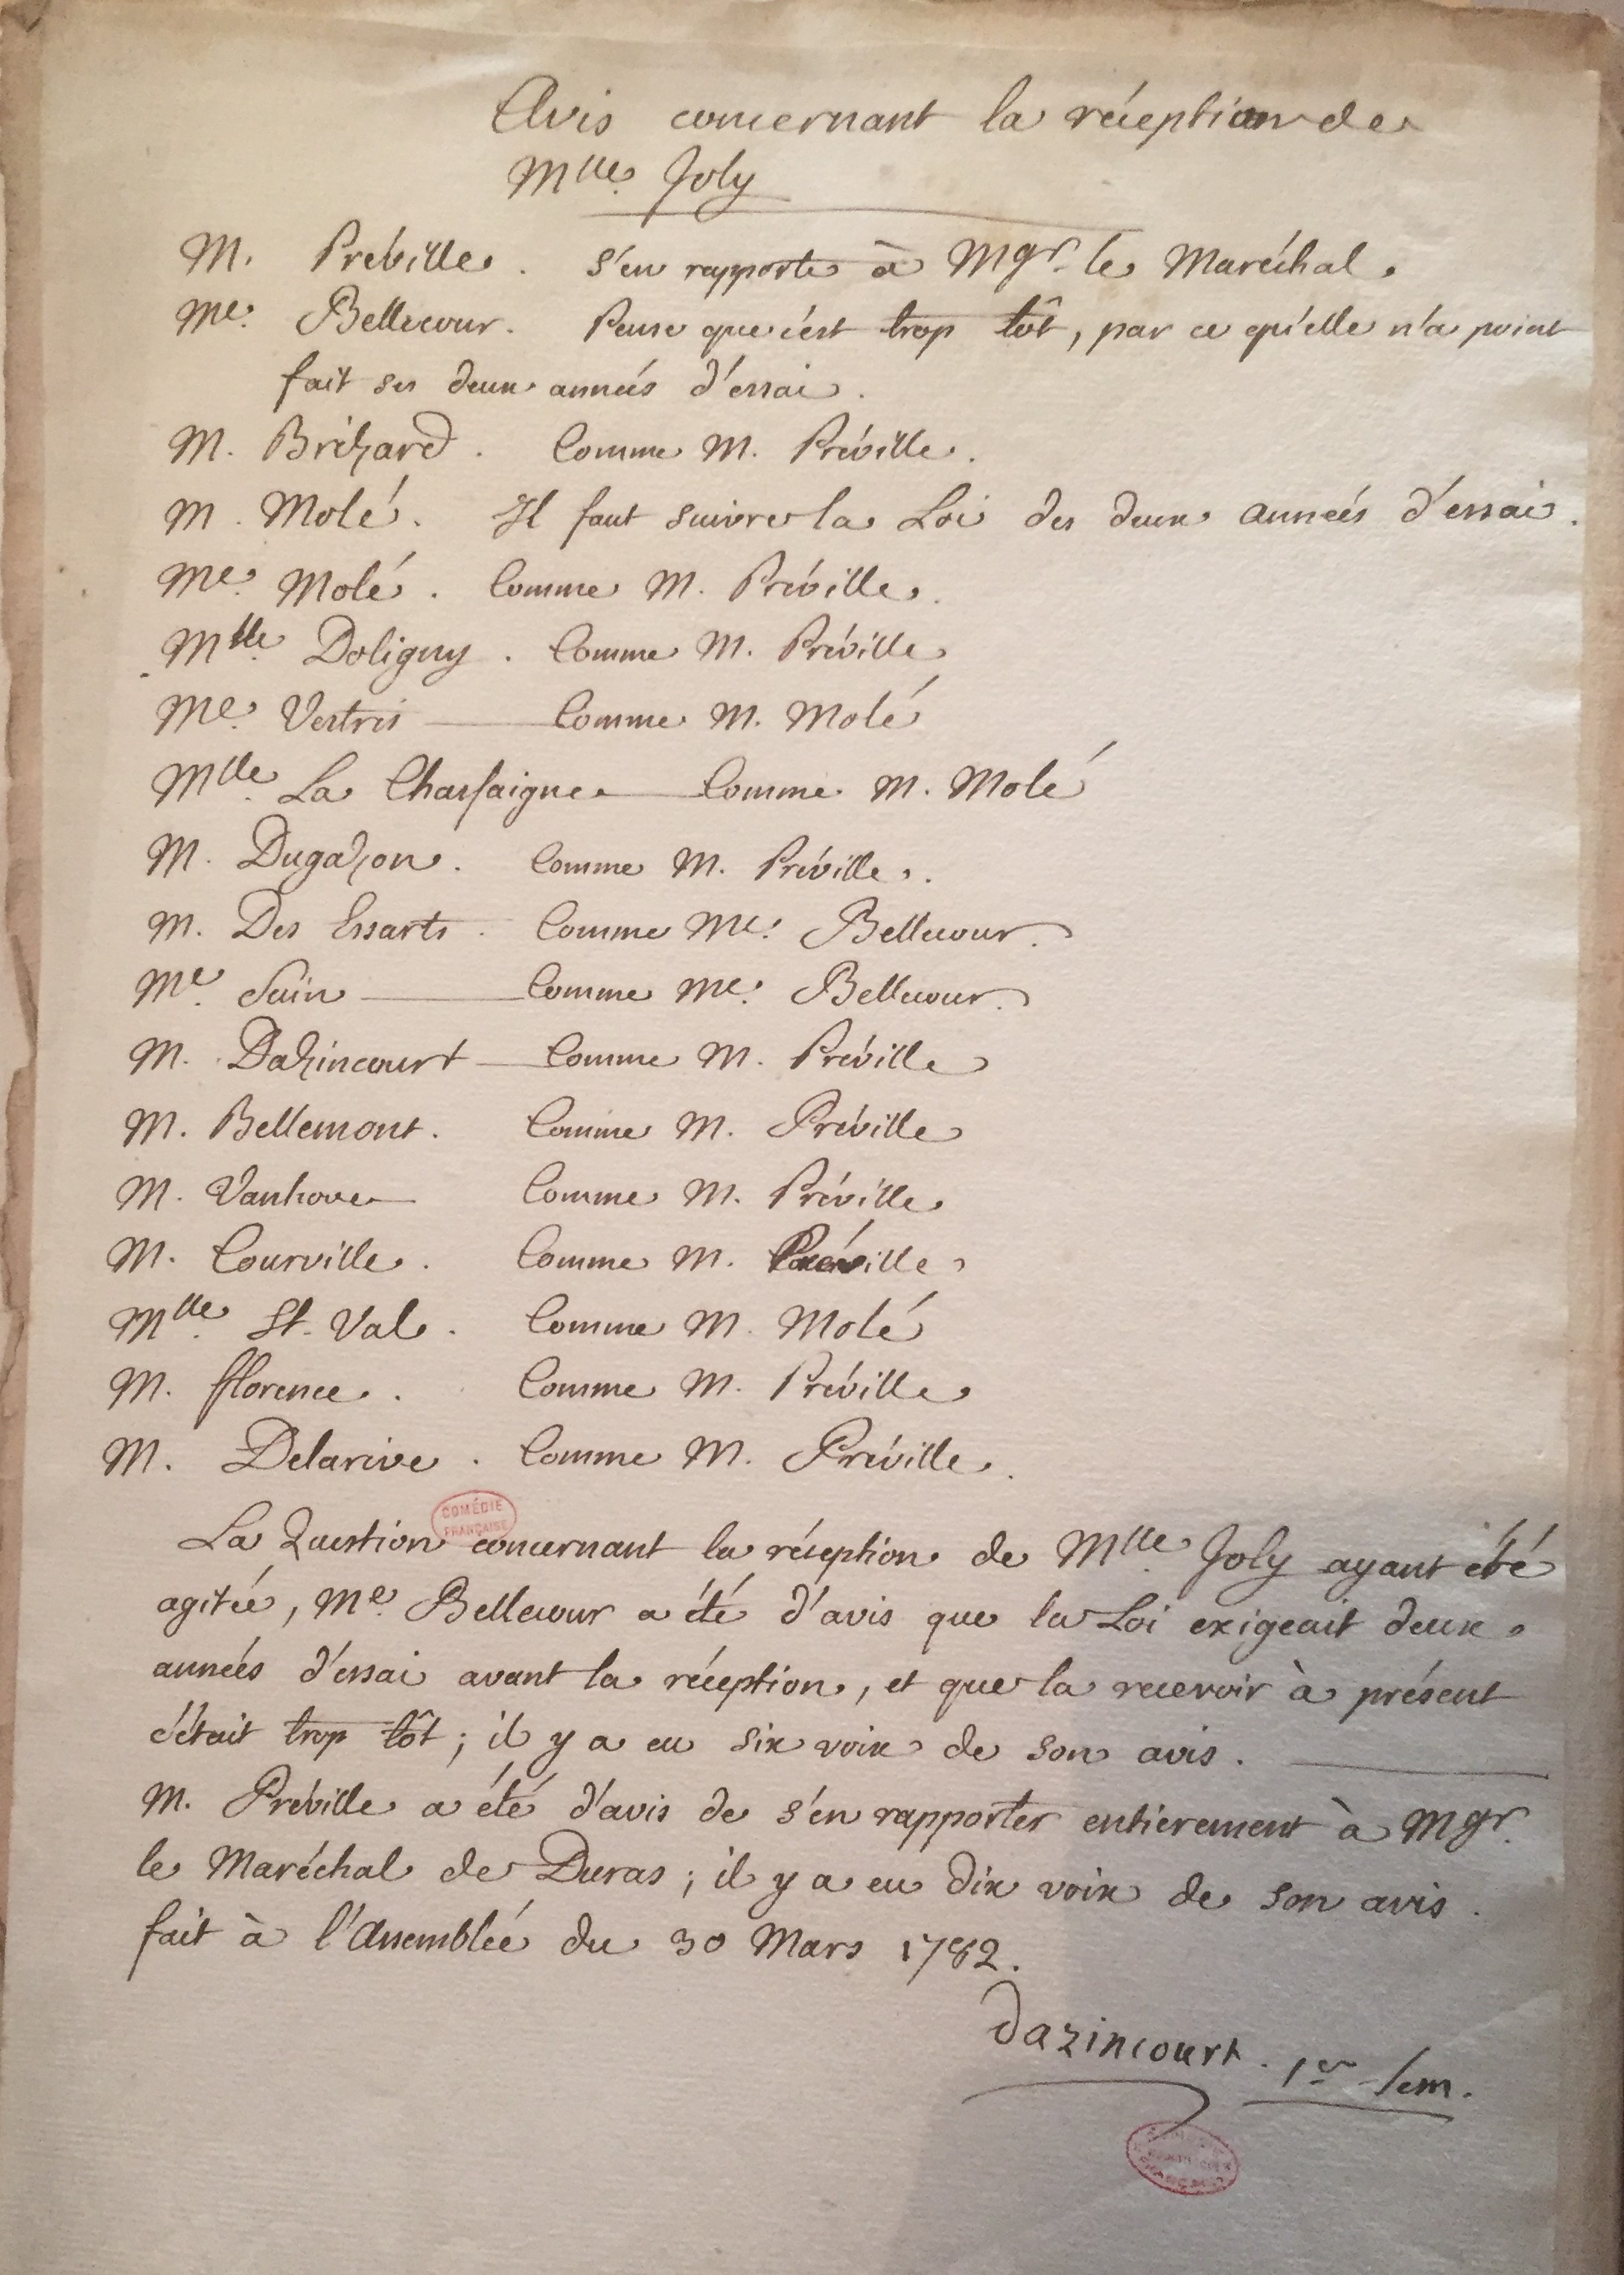 Avis concernant la réception de
Mlle. Joly
M. Préville. s'en rapporte à Mgr. le Maréchal.
Me. Bellecour. Pense que c'est trop tôt, par ce qu'elle n'a point
fait ses deux années d'essai.
M. Brizard. Comme M. Préville.
M. Molé. Il faut suivre la Loi des deux années d'essai.
Me. Molé. Comme M. Préville.
Mlle. Doligny. Comme M. Préville
Me. Vestris — Comme M. Molé
Mlle. La Chassaigne — Comme M. Molé
M. Dugazon. Comme M. Préville.
M. Des Essarts. Comme Me. Bellecour.
Me. Suin — Comme Me. Bellecour.
M. Dazincourt — Comme M. Préville
M. Bellemont. Comme M. Préville
M. Vanhove — Comme M. Préville
M. Courville. Comme M. Préville
Mlle. St. Val. Comme M. Molé
M. fflorence. Comme M. Préville
M. Delarive. Comme M. Préville.
COMÉDIE
FRANÇAISE
La Question concernant la réception de Mlle. Joly ayant été
agitée, Me. Bellecour a été d'avis que la Loi exigeait deux
années d'essai avant la réception, et que la recevoir à présent
c'était trop tôt; il y a eu six voix de son avis. —
M. Préville a été d'avis de s'en rapporter entierement à Mgr.
le Maréchal de Duras; il y a eu dix voix de son avis.
fait à l'Assemblée du 30 Mars 1782.
Dazincourt. 1er Sem.